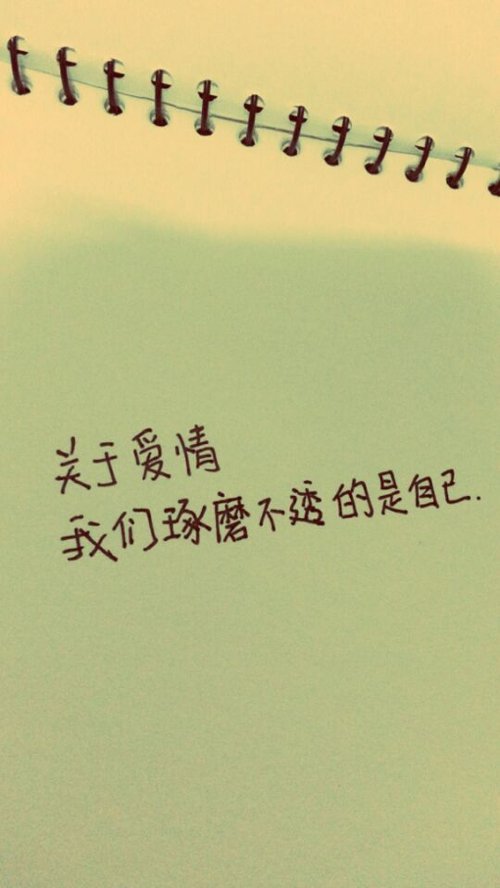 关于爱情
我们琢磨不透的是自己.